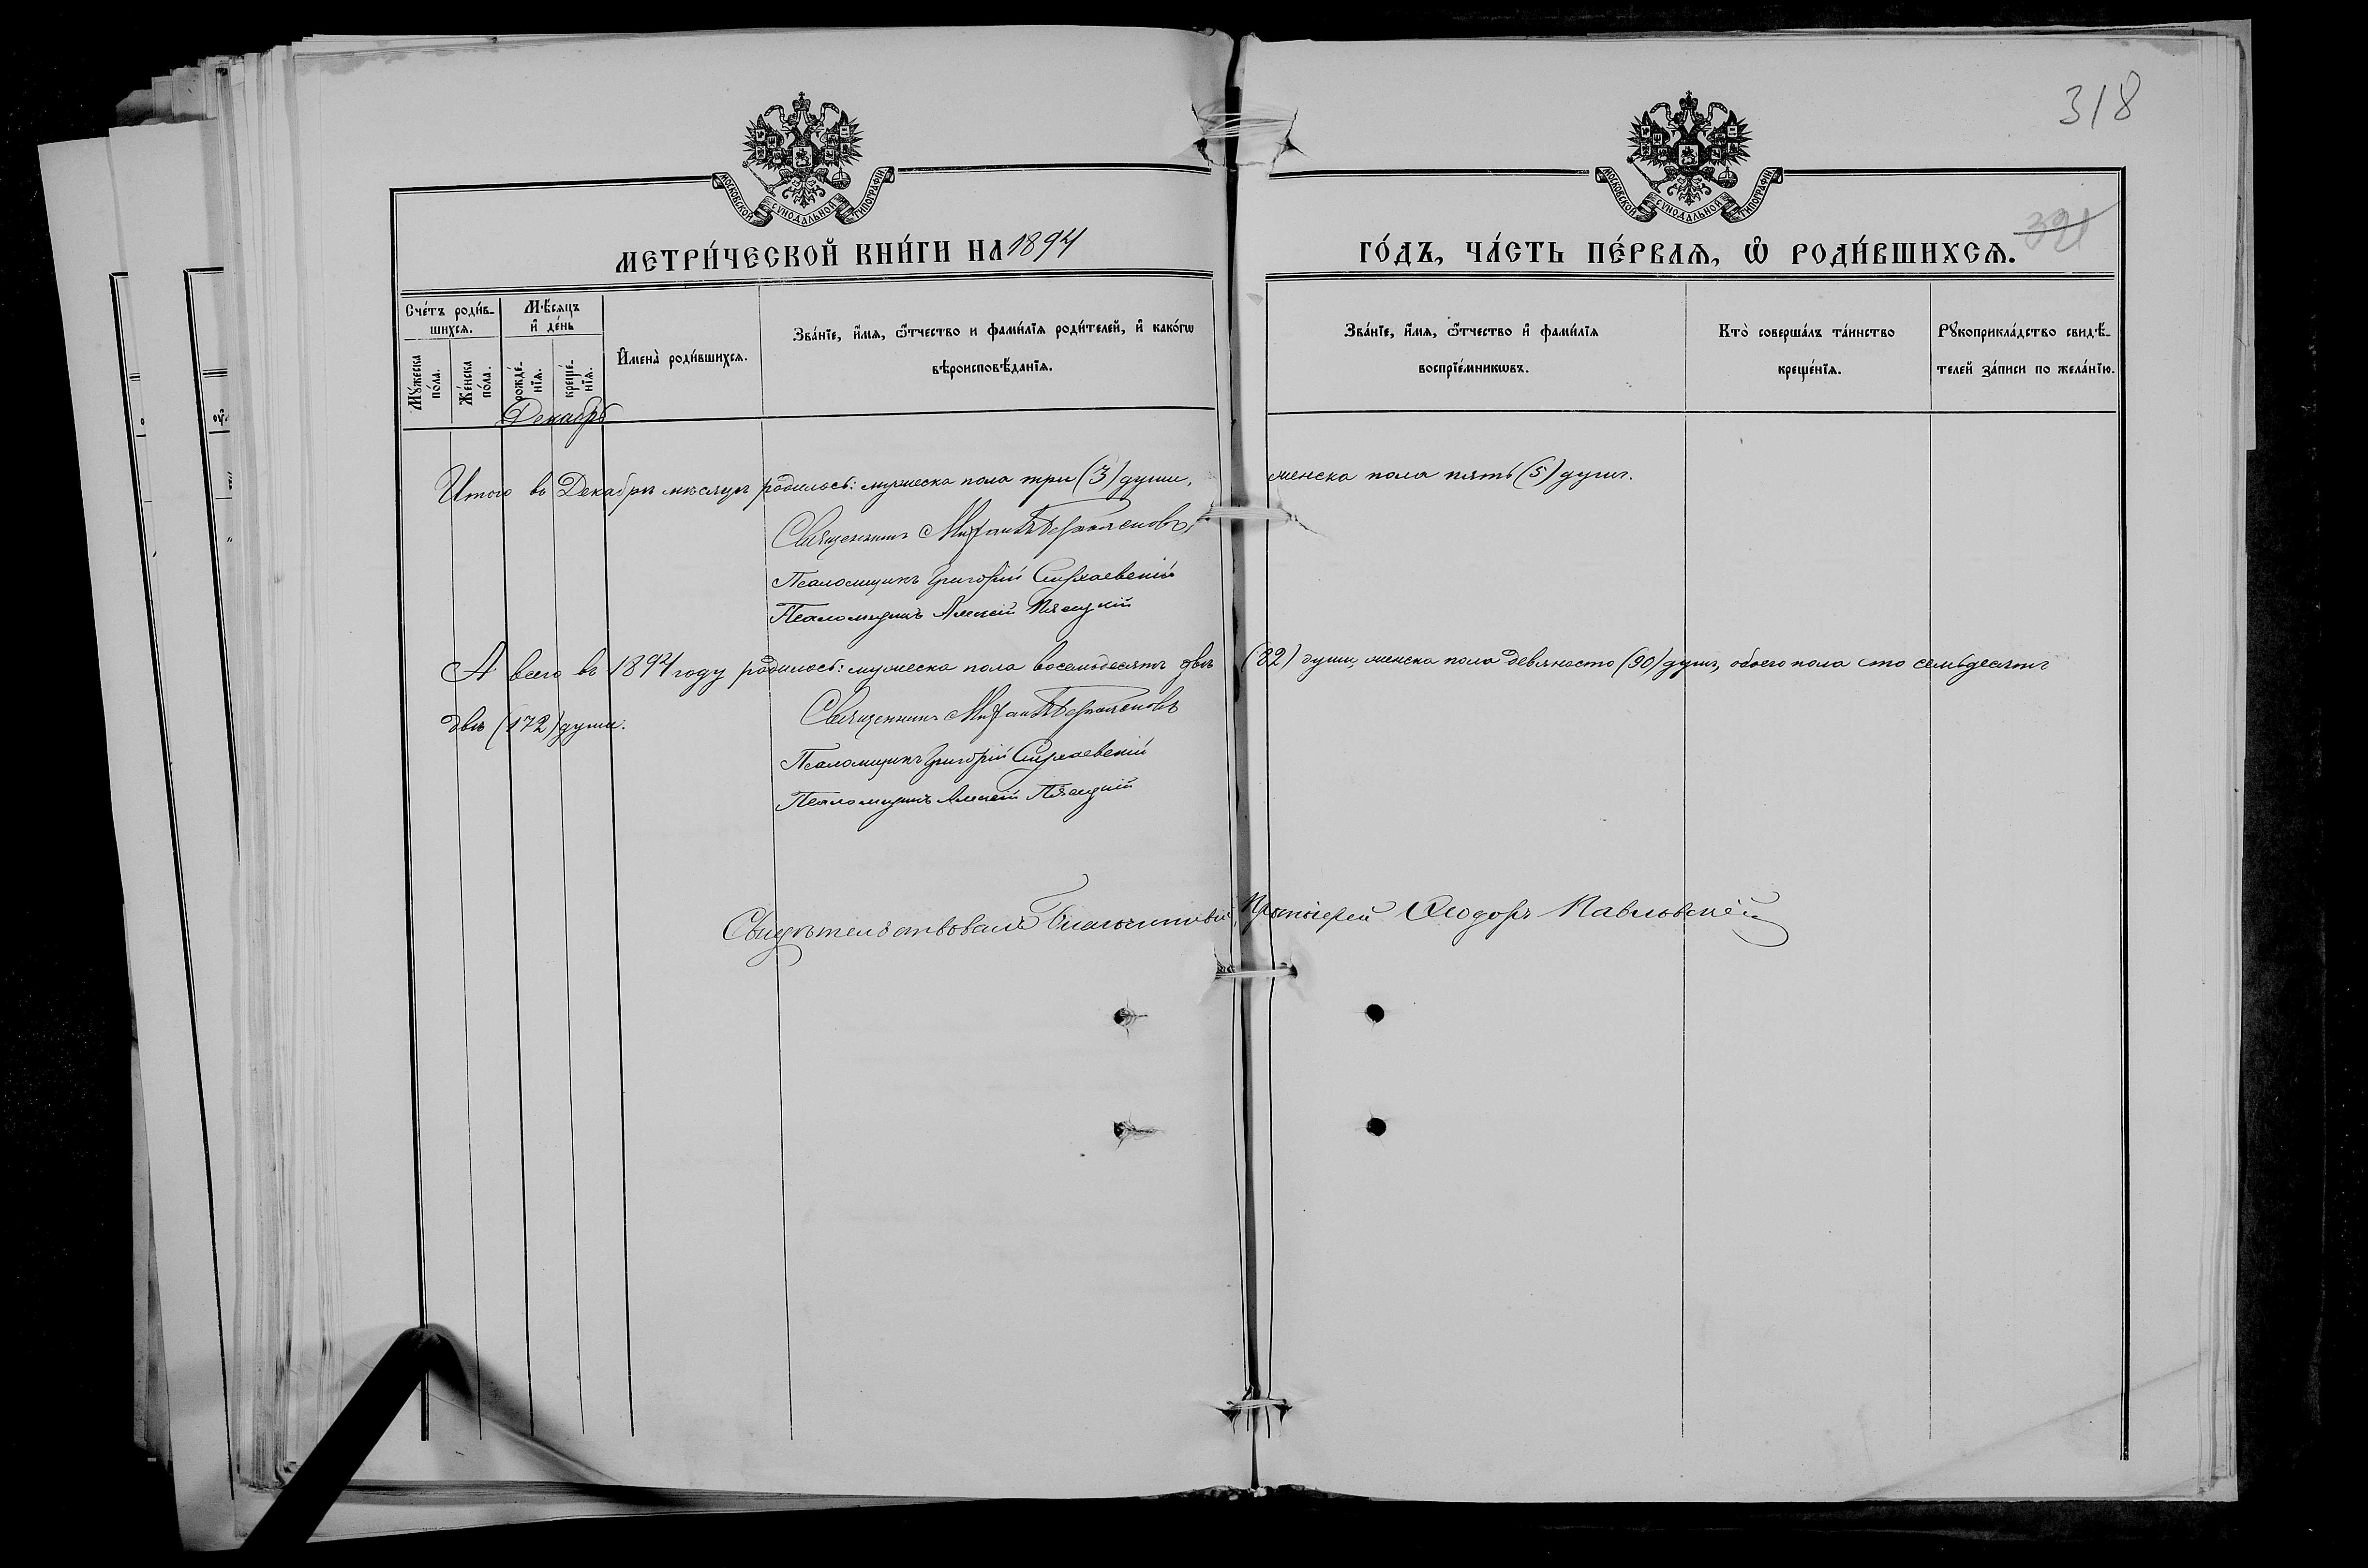 318
МОСКОВСКОЙ СѴНОДАЛЬНОЙ ТИПОГРАФІИ
МОСКОВСКОЙ СѴНОДАЛЬНОЙ ТИПОГРАФІИ
321
МЕТРИ́ЧЕСКОЙ КНИ́ГИ НА 1894
ГО́ДЪ, ЧА́СТЬ ПЕ́РВАѦ, Ѡ҆ РОДИ́ВШИХСѦ.
Сче́тъ роди́в-
шихсѧ.
Мѣ́сяцъ
и҆ де́нь
Мꙋ́жеска по́ла.
Же́нска по́ла.
рожде́-нїѧ.
креще́-нїѧ.
И҆мена̀ роди́вшихсѧ.
Зва́нїе, и҆́мѧ, ѻ҆́тчество и фами́лїѧ роди́телей, и҆ како́гѡ
вѣроисповѣ́данїѧ.
Зва́нїе, и҆́мѧ, ѻ҆́тчество и҆ фами́лїѧ
воспрїе́мникѡвъ.
Кто̀ соверша́лъ та́инство
креще́нїѧ.
Рꙋкоприкла́дство свидѣ́-
телей за́писи по жела́нїю.
Декабрь
Итого въ Декабрѣ мѣсяцѣ родилось: мужеска пола три (3) души, женска пола пять (5) душъ.
Священникъ Михаилъ
Псаломщикъ Григорій
Псаломщикъ Алексій Пясецкій
А всего въ 1894 году родилось: мужеска пола восемьдесятъ двѣ (82) души, женска пола девяносто (90) душъ, обоего пола сто семьдесятъ
двѣ (172) души.
Священникъ Михаилъ
Псаломщикъ Григорій
Псаломщикъ Алексій Пясецкій
Свидѣтельствовалъ Благочинный, Протоіерей Ѳеодоръ Павловскій